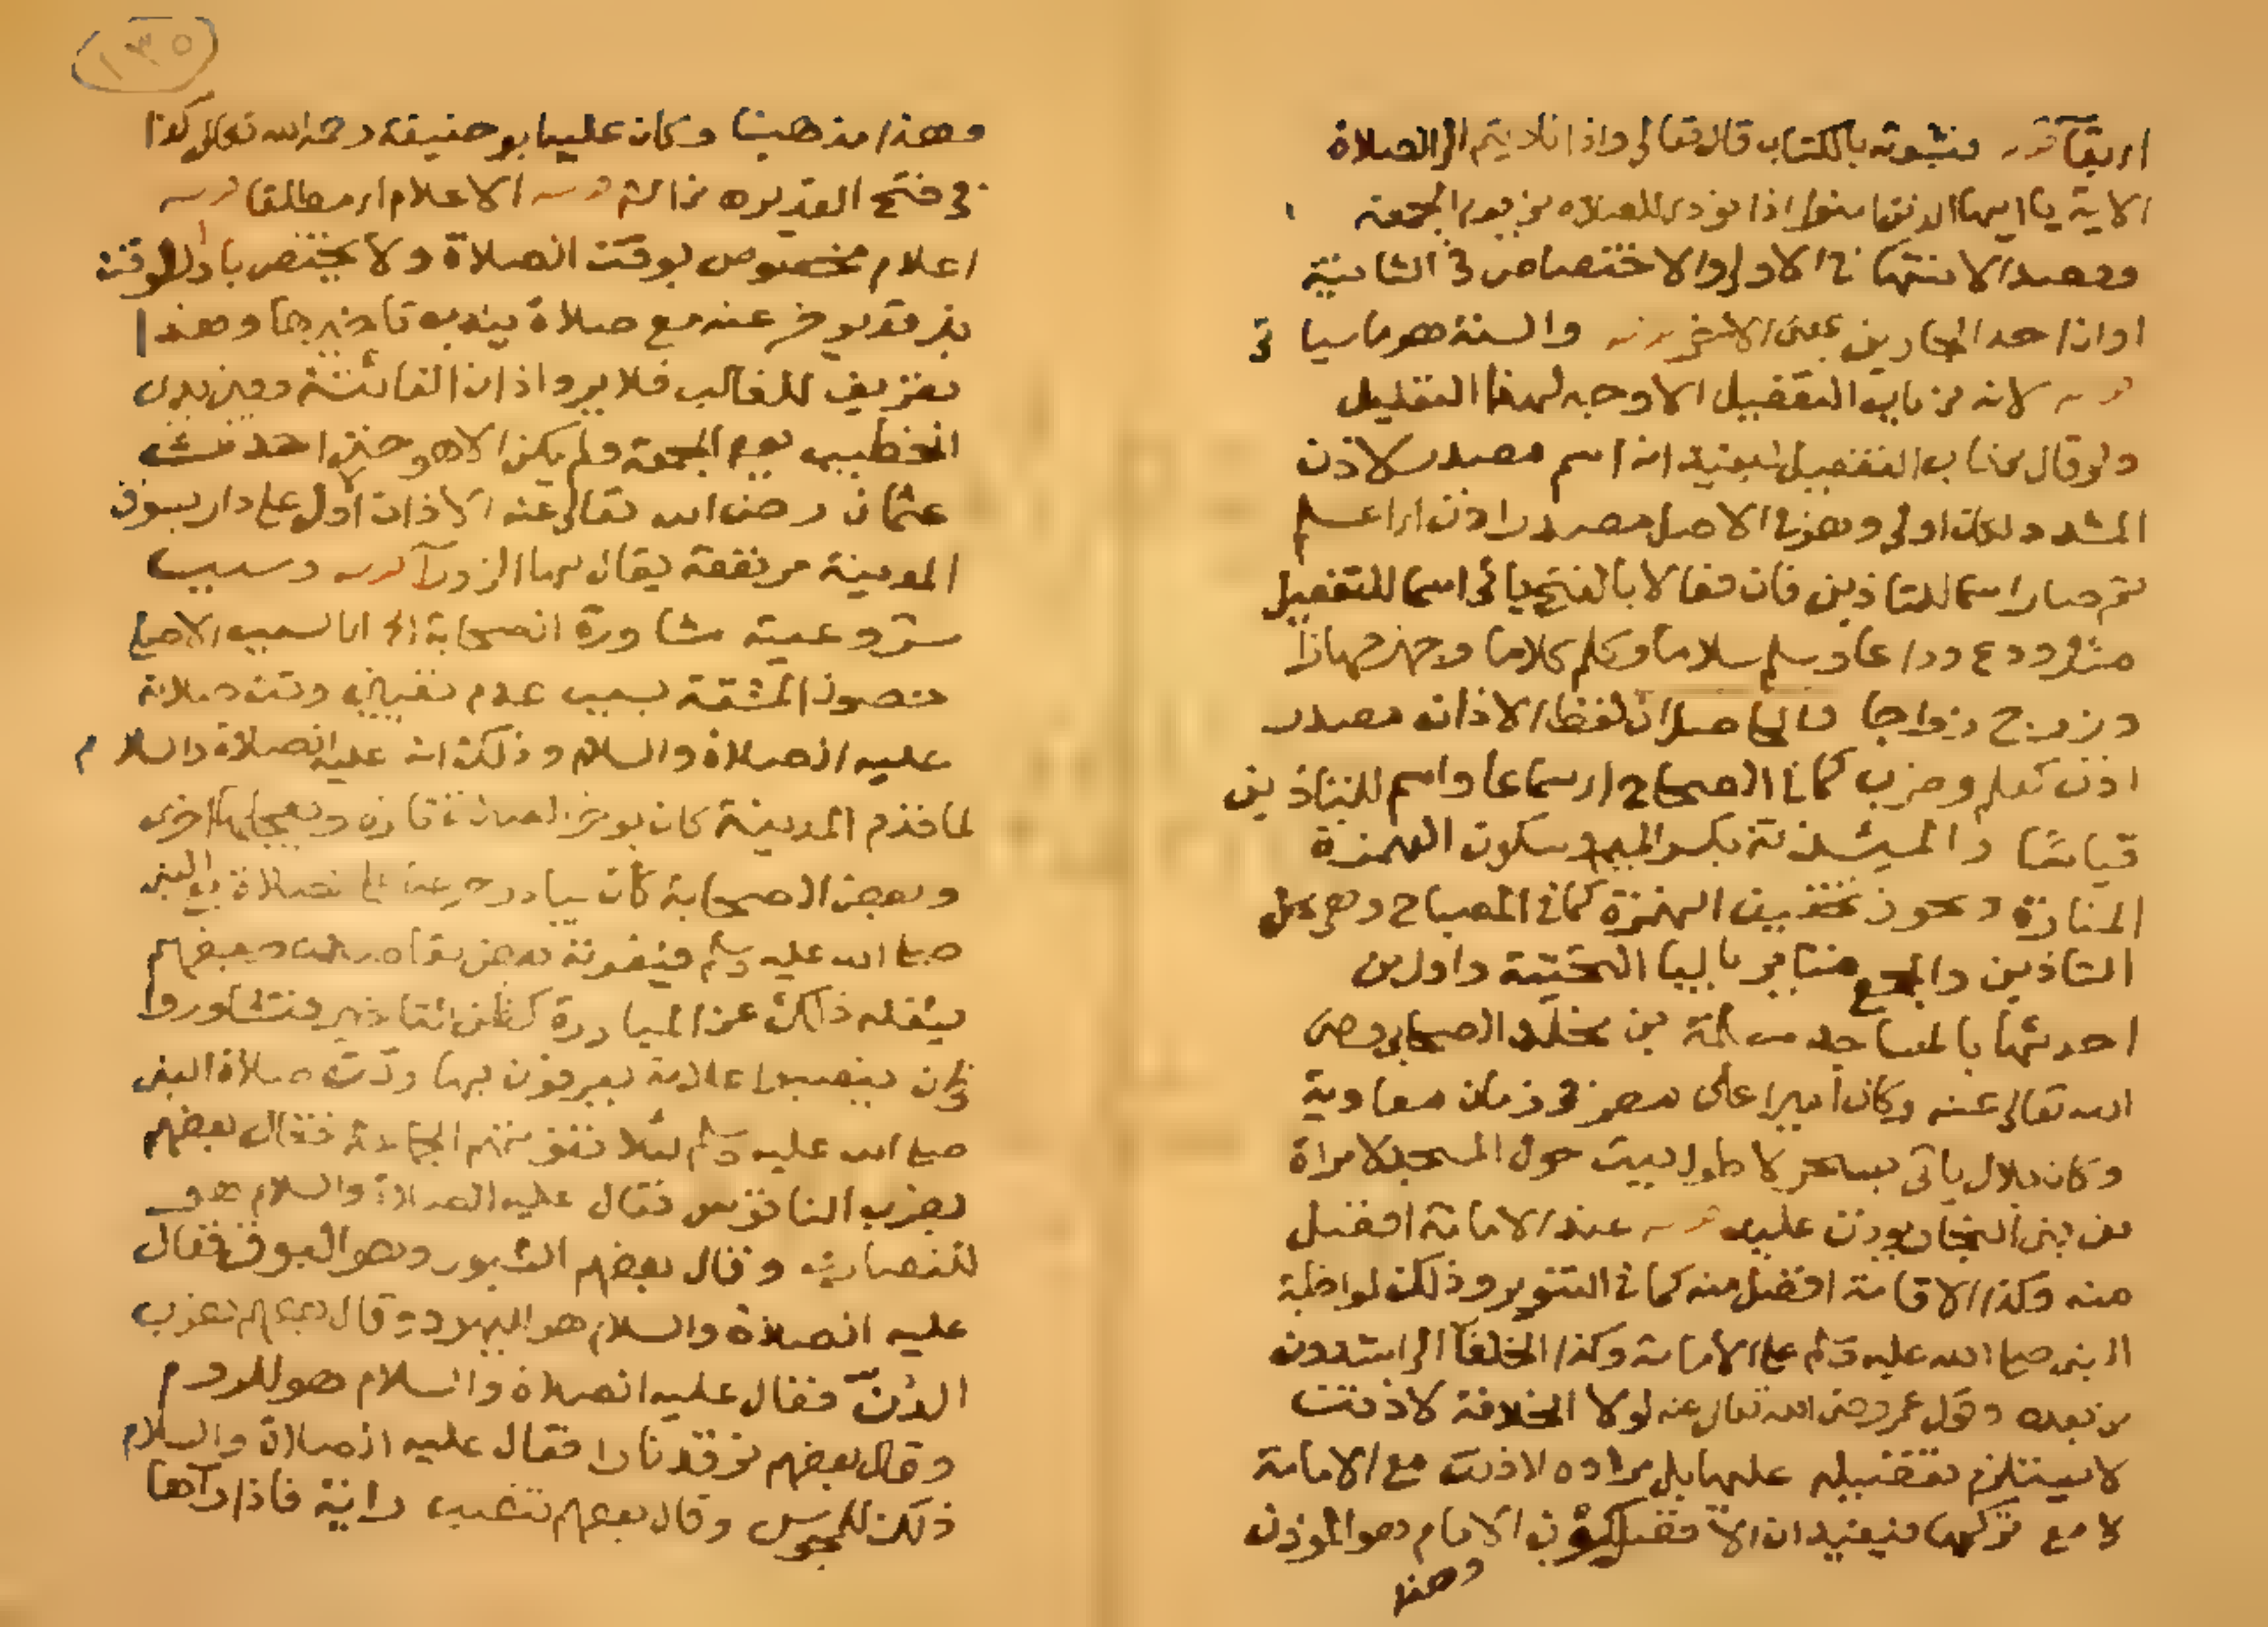 قوله فثبوته بالكتاب قال تعالى واذا ناديتم الى الصلاة
الاية يا ايها الذين امنوا اذا نودى للصلاة من يوم الجمعة
وقصد الانتهاء في الاولى والاختصاص في الثانية
احد الجارين بمعنى الاخر قوله والسنة هو ما سيا تى
قوله لانه من باب التفعيل الاوجه لهذا التعليل
ولو قال من باب التفعيل ليفيد انه اسم مصدر لاذن
المشدد لكان اولى وهو في الاصل مصدر اذن اى اعلم
ثم صار اسما للتاذين فان فعالا بالفتح ياتى اسما للتفعيل
مثل ودع وداعا وسلم سلاما وكلم كلاما وجهز جهازا
وزوج زواجا فالحاصل ان لفظ الاذان مصدر
اذن كعلم وضرب كما في الصحاح اى سماعا واسم للتاذين
قياسا والميئذنة بكسر الميم وسكون الهمزة
المنارة ويجوز تخفيف الهمزة كما في المصباح وهى محل
التاذين والجمع مياذن بالياء التحتية واول من
احدثها بالمساجد مسلمة بن مخلد الصحابى رضى
الله تعالى عنه وكان اميرا على مصر في زمان معاوية
وكان بلال ياتى بسحر لاطول بيت حول المسجد لامراة
من بنى النجار يوذن عليه قوله عندنا الامامة افضل
منه وكذا الاقامة افضل منه كما في التنوير وذلك لمواظبة
النبى صلى الله عليه وسلم على الامامة وكذا الخلفا الراشدون
من بعده وقول عمر رضى الله تعالى عنه لولا الخلافة لاذنت
لا يستلزم تفضيله عليها بل مراده لاذنت مع الامامة
لا مع تركها فيفيد ان الافضل كون الامام هو الموذن
وهذا
١٣٥
وهذا مذهبنا وكان عليه ابو حنيفة رحمه الله تعالى كذا
في فتح القدير قوله الاعلام اى مطلقا قوله
اعلام مخصوص بوقت الصلاة ولا يختص باول الوقت
بل قد يوخر عنه مع صلاة يندب تاخيرها وهذا
تعريف للغالب فلا يرد اذان الفائتة وبين يدى
الخطيب يوم الجمعة ولم يكن الا هو حتى احدث
عثمان رضى الله تعالى عنه الاذان الاول على دار بسوق
المدينة مرتفعة يقال لها الزورآ قوله وسبب
مشروعيته مشاورة الصحابة الخ اما السبب الاصلى
فحصول المشقة بسبب عدم تعيين وقت صلاته
عليه الصلاة والسلام وذلك انه عليه الصلاة والسلام
لما قدم المدينة كان يوخر الصلاة تارة ويعجلها اخرى
وبعض الصحابة كان يبادر حرصا على الصلاة مع النبى
صلى الله عليه وسلم فيفوته بعض مقاصده وبعضهم
يشغله ذلك عن المبادرة لظن التاخير فتشاوروا
في ان ينصبوا علامة يعرفون بها وقت صلاة النبى
صلى الله عليه وسلم لئلا تفوتهم الجماعة فقال بعضهم
نضرب الناقوس فقال عليه الصلاة والسلام هو
للنصارى وقال بعضهم الشبور وهو البوق فقال
عليه الصلاة والسلام هو لليهود وقال بعضهم نضرب
الدف فقال عليه الصلاة والسلام هو للروم
وقال بعضهم نوقد نارا فقال عليه الصلاة والسلام
ذلك للمجوس وقال بعضهم تنصب راية فاذا راها